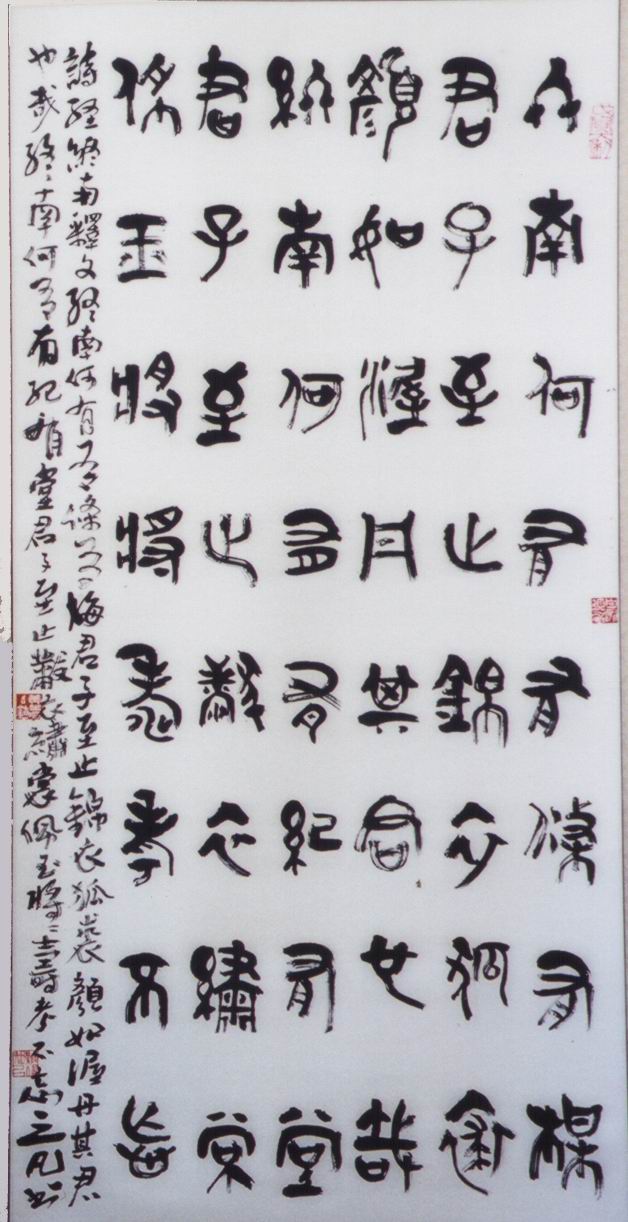 終南何有有條有楳
君子至止錦衣狐裘
顏如渥丹其君也哉
終南何有有紀有堂
君子至止黻衣繡裳
佩玉將將壽考不忘
詩經終南釋文終南何有有條有梅君子至止錦衣狐裘顏如渥丹其君
也哉終南何有有紀有堂君子至止黻衣繡裳佩玉將將壽考不忘